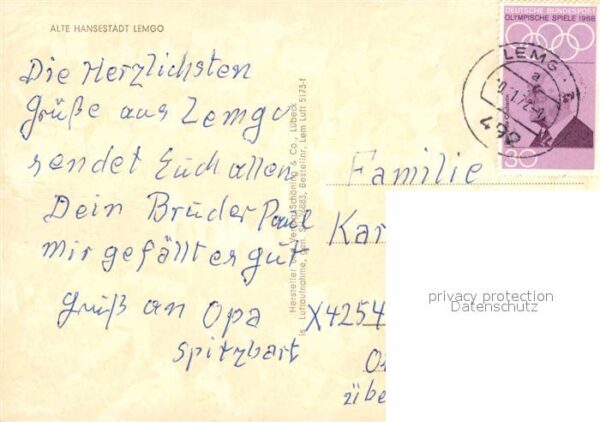 ALTE HANSESTADT LEMGO
Die Herzlichsten
Grüße aus Lemgo
sendet Euch allen
Dein Bruder Paul
mir gefällt es gut
Gruß an Opa
Spitzbart
Hersteller und Verlag Schöning & Co., Lübeck
Luftaufnahme, gen. Bestellnr. Lem Luft 5173-f
DEUTSCHE BUNDESPOST
OLYMPISCHE SPIELE 1968
30
LEMG
492
Familie
Kar
X4254
übe
privacy protection
Datenschutz